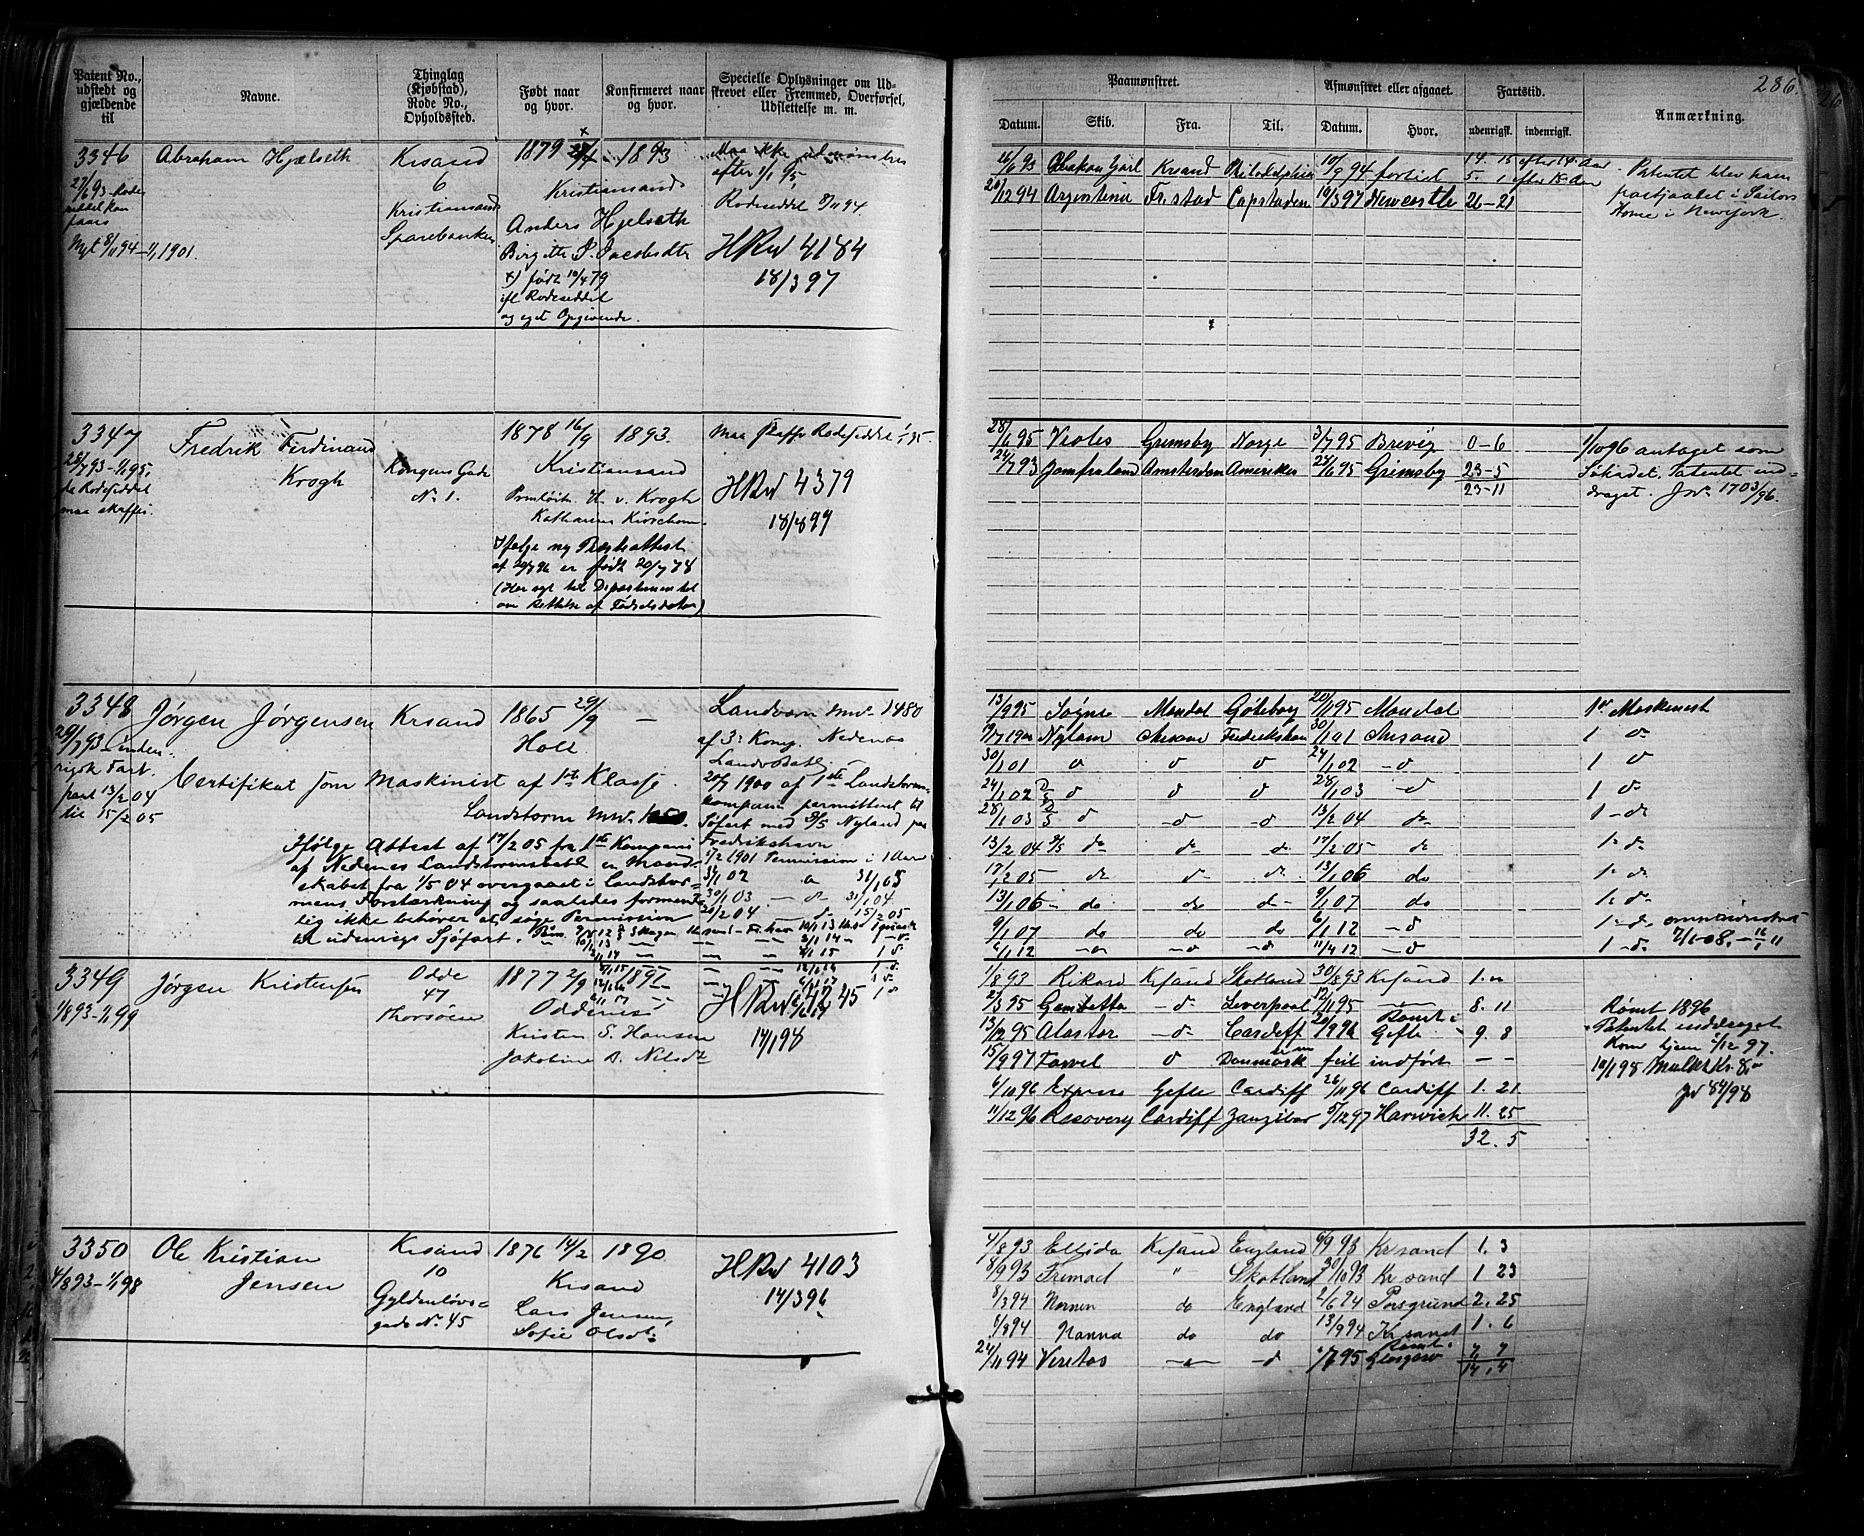 Patent No., udstedt og gjældende til
Navne.
Thinglag (Kjøbstad), Rode No., Opholdssted.
Født naar og hvor.
Konfirmeret naar og hvor.
Specielle Oplysninger om Udskrevet eller Fremmed, Overførsel, Udslettelse m. m.
3346
Abraham Hjelseth
Krsand
6
Kristiansands
Sparebanken
1879
1893
Kristiansand
Anders Hjelseth
Birgitte
x) født 10/4 79
ifl Rodeseddel
og eget Opgivende.
efter 1/1 95,
Rodeseddel 8/11 94.
HRW 4184
18/3 97
Nyt 8/11 94 - 1/1 1901.
3347
28/7 93 - 1/1 95,
Rodeseddel
maa skaffes.
Fredrik Ferdinand
Krogh
Kongens Gade
No 1.
1878 16/9 1893.
Kristiansand
H. v. Krogh
Ifølge ny Præsteattest
af 20/7 96 er født 20/7 78
(Her søgt til Departementet
om Rettelse af Fødselsdatoen)
HRW 4379
18/8 99
3348
29/7 93
rigsk Fart.
part 13/2 04
til 15/2 05
Jørgen Jørgensen
Krsand
1865 29/9 -
Holt
Landværn mw. 1480
af 3. Komp. Nedenæs
Certifikat som Maskinist af 1ste Klasse
Landstorm mw.
20/7 1900 af 1ste Landstorm-
kompani permitteret til
Søfart med D/S Nyland paa
Fredrikshavn
5/2 1901 Permission i 1 Aar
Ifølge Attest af 17/2 05 fra 1ste Kompani
af Nedenes Landstormsbatl er Mand-
skabet fra 1/5 04 overgaaet i Landstor-
mens Forstærkning og saaledes forment-
lig ikke behøver at søge Permission
til udenrigs Sjøfart.
3349
1/8 93 - 1/1 99
Jørgen Kristensen
Odde
47
Thorsøen
1877 2/9 1892
Oddernes
Kristen S. Hansen
Jakobine
HRW 4245
14/1 98
3350
4/8 93 - 1/1 98
Ole Kristian
Jensen
Krsand
10
Gyldenløvs-
gade No. 45
1876 14/2 1890
Krsand
Lars Jensen,
Sofie Olsdt.
HRW 4103
14/3 96
286.
Paamønstret.
Afmønstret eller afgaaet.
Fartstid.
Anmærkning.
Datum. Skib. Fra. Til. Datum. Hvor. udenrigsk. indenrigsk.
26/6 93 Haakon Jarl Krsand Philadelphia 10/9 94 forlist 14. 15
20/12 94 Argentina Fr.stad Capstaden 10/3 97 Newcastle 26-21
Patentet blev ham
frastjaalet i Sailors
Home i Newyork.
28/6 95 Grimsby Norge 3/7 95 Brevig 0-6
24/7 93 Jomfruland Amsterdam Amerika 27/6 95 Grimsby 23-5
23-11
1/10 96 antaget som
Søkadet. Patentet ind-
draget. Jw. 1703/96.
13/9 95 Søgne Mandal Göteborg 20/11 95 Mandal 1ste Maskinist
7/7 1900 Nyland Chrsand Fredrikshavn 30/1 01 Chrsand 1 do
30/1 01 do do do 24/1 02 - do 1 do
24/1 02 D/S do do do 28/1 03 - do 1 do
28/1 03 D/S do - do - do 13/2 04 do 1 - do
13/2 04 D/S do - do - do 17/2 05 do 1 - do
17/2 05 - do - do - do 13/1 06 do 1 - do
13/1 06 - do - do do - 9/1 07 do 1 - do
9/1 07 do do do 6/1 12 - do 1 - do
6/1 12 - do - do - do 11/4 12 - do 1 - do
1/8 93 Rikard Krsand Skotland 30/8 93 Krsand 1. "
2/3 95 Gambetta - do Liverpool 12/11 95 8. 11
13/12 95 Alastor - do Cardiff 20/9 96 Rømt i Gefle - 9. 8
15/9 97 Farvel do Danmark feil indført - -
6/10 96 Express Gefle Cardiff 26/11 96 Cardiff 1. 21
11/12 96 Recovery Cardiff Zanzibar 5/12 97 Harwich 11. 25
32. 5
Rømt 1896
Patentet inddraget
Kom hjem 5/12 97.
10/1 98 Mulkt Kr. 8,-
jw 84/98
4/8 93 Ellida Krsand England 6/9 93 Krsand 1. 3
8/9 93 Fremad " Skotland 30/10 93 Krsand 1 23
8/3 94 Nornen do England 2/6 94 Porsgrund 2. 25
8/8 94 Nanna do do 13/9 94 Krsand 1. 6
24/11 94 Veritas - do - do 95 Rømt Glasgow 7. 7
14, 4